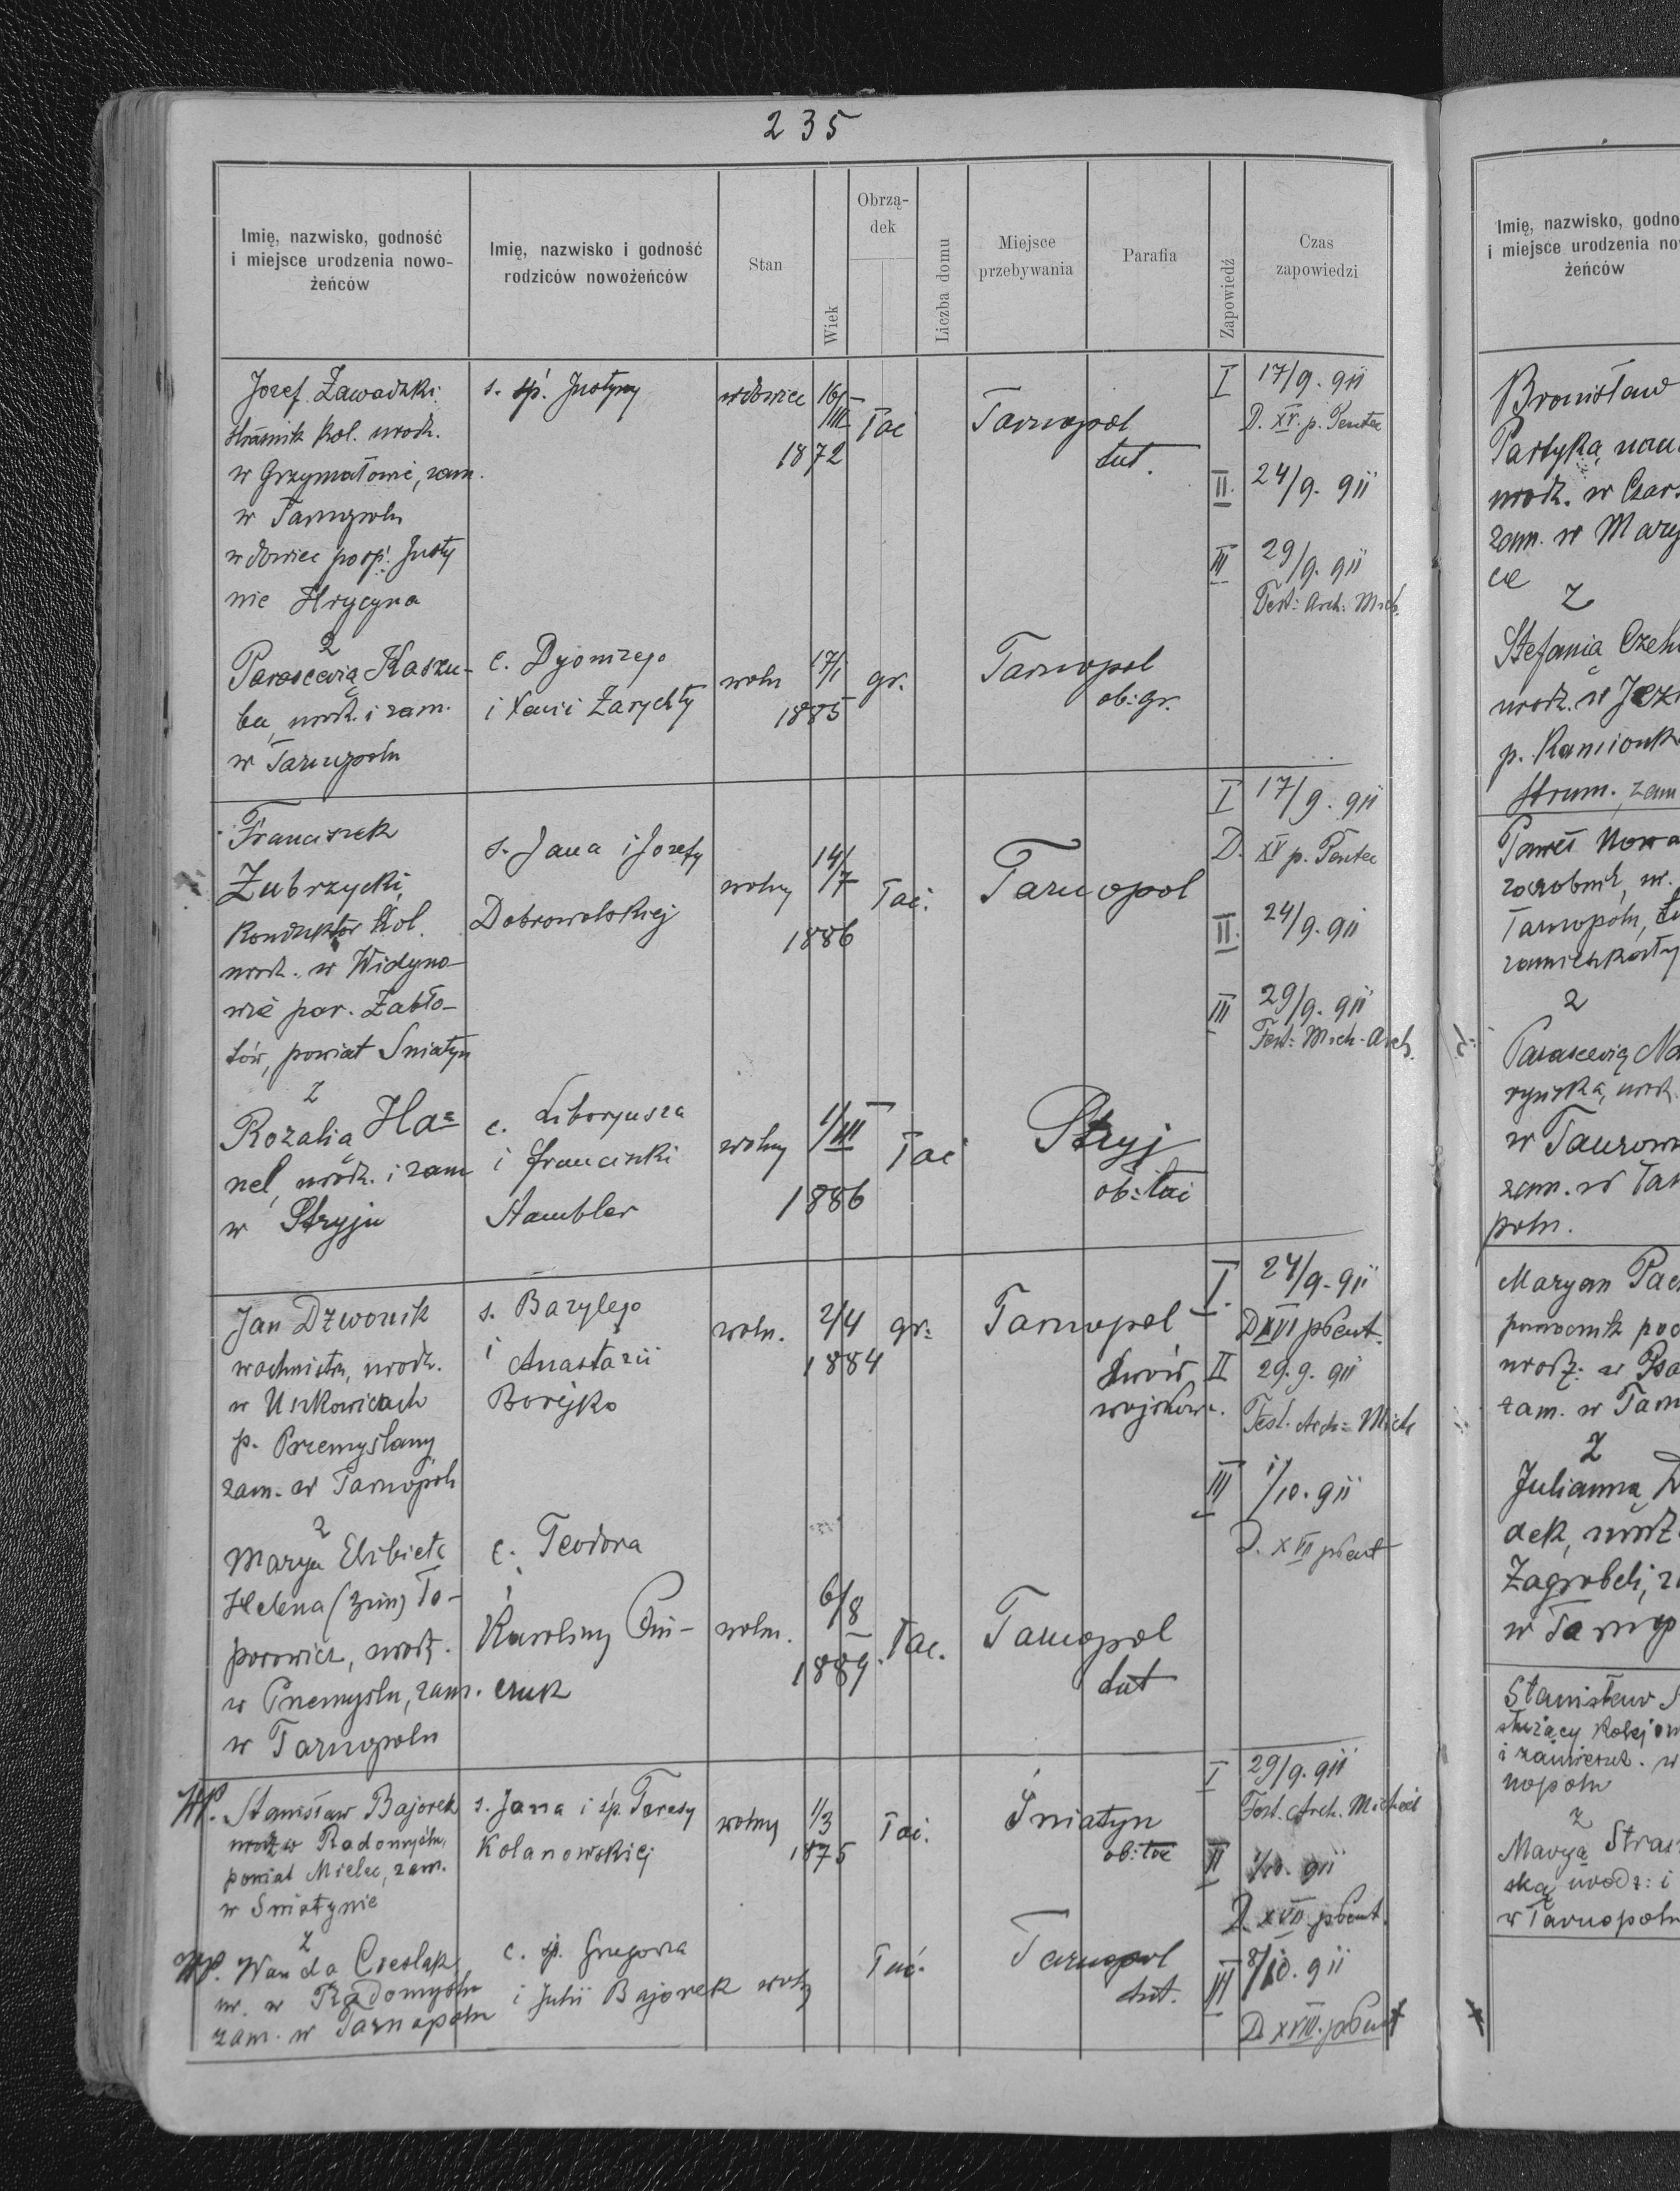 235
Imię, nazwisko, godność
i miejsce urodzenia nowo-
żeńców
Imię, nazwisko i godność
rodziców nowożeńców
Stan
Wiek
Obrzą-
dek
Liczba domu
Miejsce
przebywania
Parafia
Zapowiedź
Czas
zapowiedzi
Jozef Zawadzki
kol. urodz.
w Grzymałowie, zam.
w Tarnopolu
wdowiec po śp. Justy
nie Hrycyna
s. śp. Justyny
wdowiec
16/III
1872
łac
Tarnopol
tut.
I 17/9. 911
D. XV. p. Pentec
II. 24/9. 911
III 29/9. 911
Fest: Arch: Mich.
z
Parascewią Kaszu-
ba, urodz. i zam.
w Tarnopolu
c. Dyonizego
i Xenii Zarychty
woln
17/1
1885
gr.
Tarnopol
ob: gr.
Franciszek
Zubrzycki,
Konduktor kol.
urodz. w Widyno-
wie par. Zabło-
tów, powiat Sniatyn
s. Jana i Jozefy
Dobrowolskiej
wolny
14/7
1886
łac.
Tarnopol
I 17/9. 911
D. XV p. Pentec
II. 24/9. 911
III 29/9. 911
Fest: Mich. Arch.
z
Rozalią Ha=
nel, urodz. i zam
w Stryju
c. Liboryusza
i Franciszki
Stambler
wolny
1/III
1886
łac
Stryj
ob: łac
Jan Dzwonik
wachmistrz, urodz.
w Uszkowicach
p. Przemyślany
zam. w Tarnopolu
s. Bazylego
i Anastazii
Borejko
woln.
2/4
1884
gr:
Tarnopol
Lwów
wojskow.
I. 24/9. 911
D XVI pPent.
II 29. 9. 911
Fest. Arch: Mich
III 1/10. 911
D. XVII pPent
z
Marya Elżbieta
Helena (3im) To-
porowicz, urodz.
w Przemyślu, zam.
w Tarnopolu
c. Teodora
i
Karoliny Oni-
czuk
woln.
6/8
1889.
łac.
Tarnopol
tut
Wp. Stanisław Bajorek
urodz w Radomyślu,
powiat Mielec, zam.
w Sniatynie
s. Jana i śp. Teresy
Kolanowskiej
wolny
1/3
1875
łac.
Śniatyn
ob: łac
I 29/9. 911
Fest. Arch. Michael
II 1/10. 911
D. XVII pPent.
III 8/10. 911
D XVIII. pPent
z
Wp. Wanda Cieslak
ur. w Radomyślu
zam. w Tarnopolu
c. śp. Grzegorza
i Julii Bajorek
wolny
łać.
Tarnopol
tut.
Imię, nazwisko, godno
i miejsce urodzenia no
żeńców
Bronisław
Partyka, nau
urodz. w Czar
zam. w Mary
ce
z
Stefanią Czeh
urodz. w Jezi
p. Kamionk
Strum., zam
Paweł Nowa
zarobnik, ur.
Tarnopolu,
zamieszkały
z
Parascewią Na
ryńską, urodz.
w Taurow
zam. w Tar
polu.
Maryan Pac
pomocnik poc
urodz: w
zam. w Tarn
z
Julianną
dek, urodz
Zagrobeli, z
w Tarnop
Stanisław S
służący kolejow
i zamieszk. w
nopolu
z
Maryą Stras
ską urodz: i
w Tarnopolu